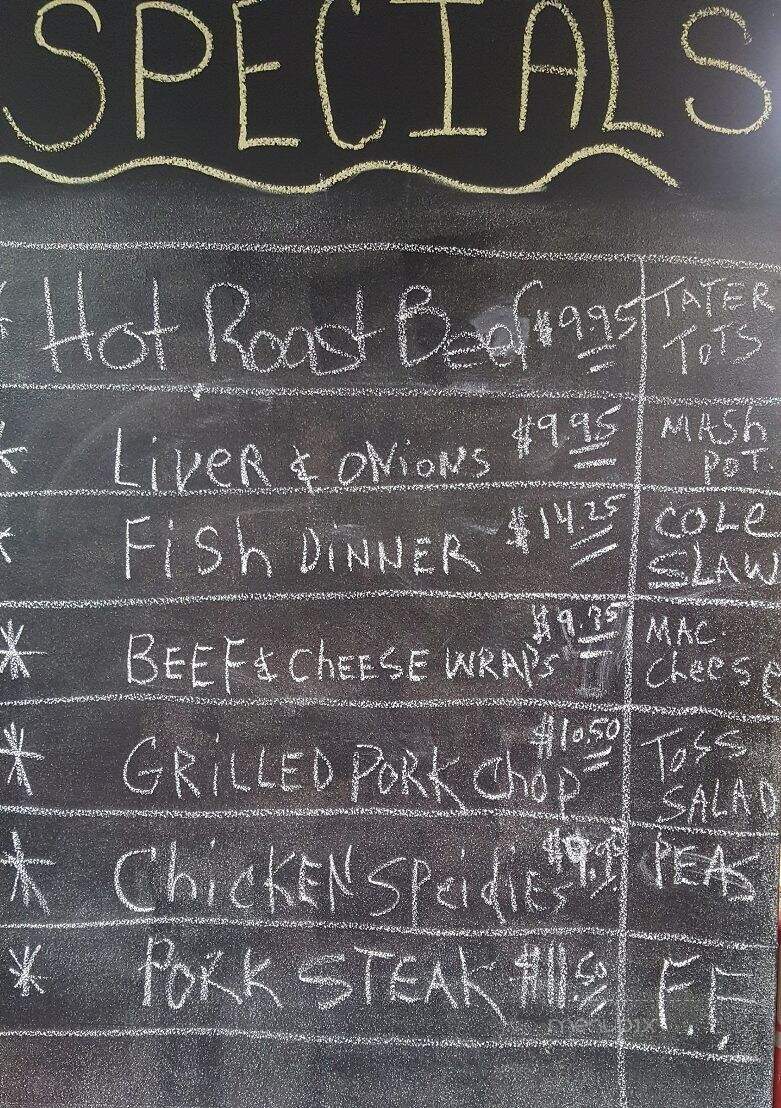 SPECIALS
* Hot Roast Beef $9.95 TATER TOTS
* LiVER & ONiONS $9.95 MASh POT.
* Fish DINNER $14.25 COLE SLAW
* BEEF & ChEESE WRAPS MAC. Cheese
* GRiLLED PORK Chop $10.50 Toss SALAD
* ChiCKEN Speidies PEAS
* PORK STEAK $11.50 F.F.
menupix